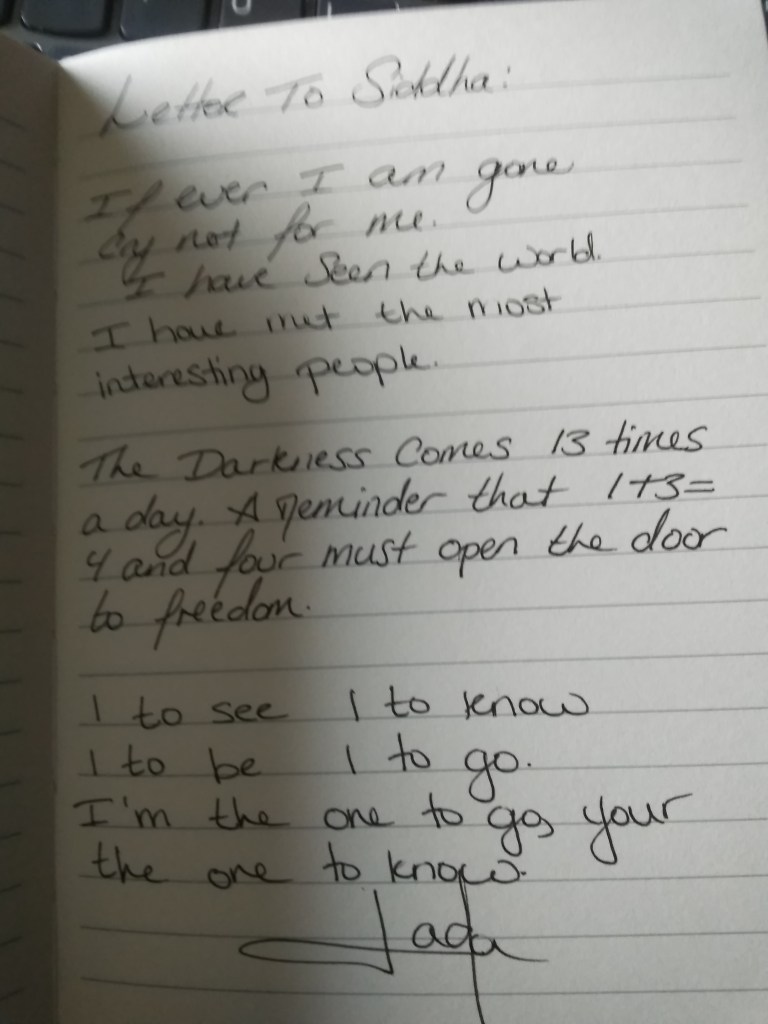 Letter To Siddha:
If ever I am gone
Cry not for me.
I have seen the world.
I have met the most
interesting people.
The Darkness Comes 13 times
a day. A reminder that 1+3=
4 and four must open the door
to freedom.
1 to see 1 to know
1 to be 1 to go.
I'm the one to go, your
the one to know.